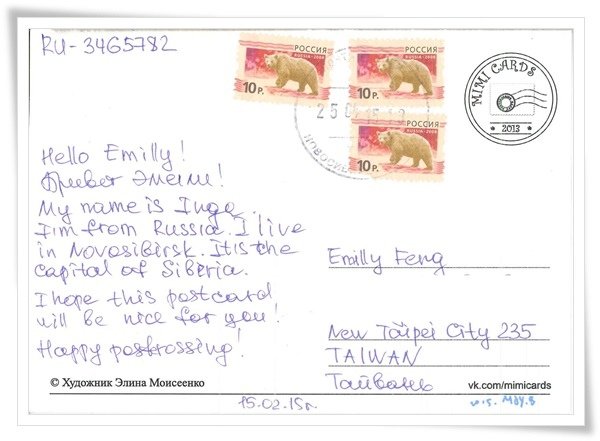 RU-3465782
РОССИЯ
RUSSIA · 2008
10 Р.
РОССИЯ
RUSSIA · 2008
10 Р.
РОССИЯ
RUSSIA · 2008
10 Р.
MIMI CARDS
2013
Hello Emilly!
Привет Эмели!
My name is Inga.
I'm from Russia. I live
in Novosibirsk. It is the
capital of Siberia.
I hope this postcard
will be nice for you!
Happy postrossing!
Emilly Feng
New Taipei City 235
TAIWAN
Тайвань
© Художник Элина Моисеенко
vk.com/mimicards
15.02.15г.